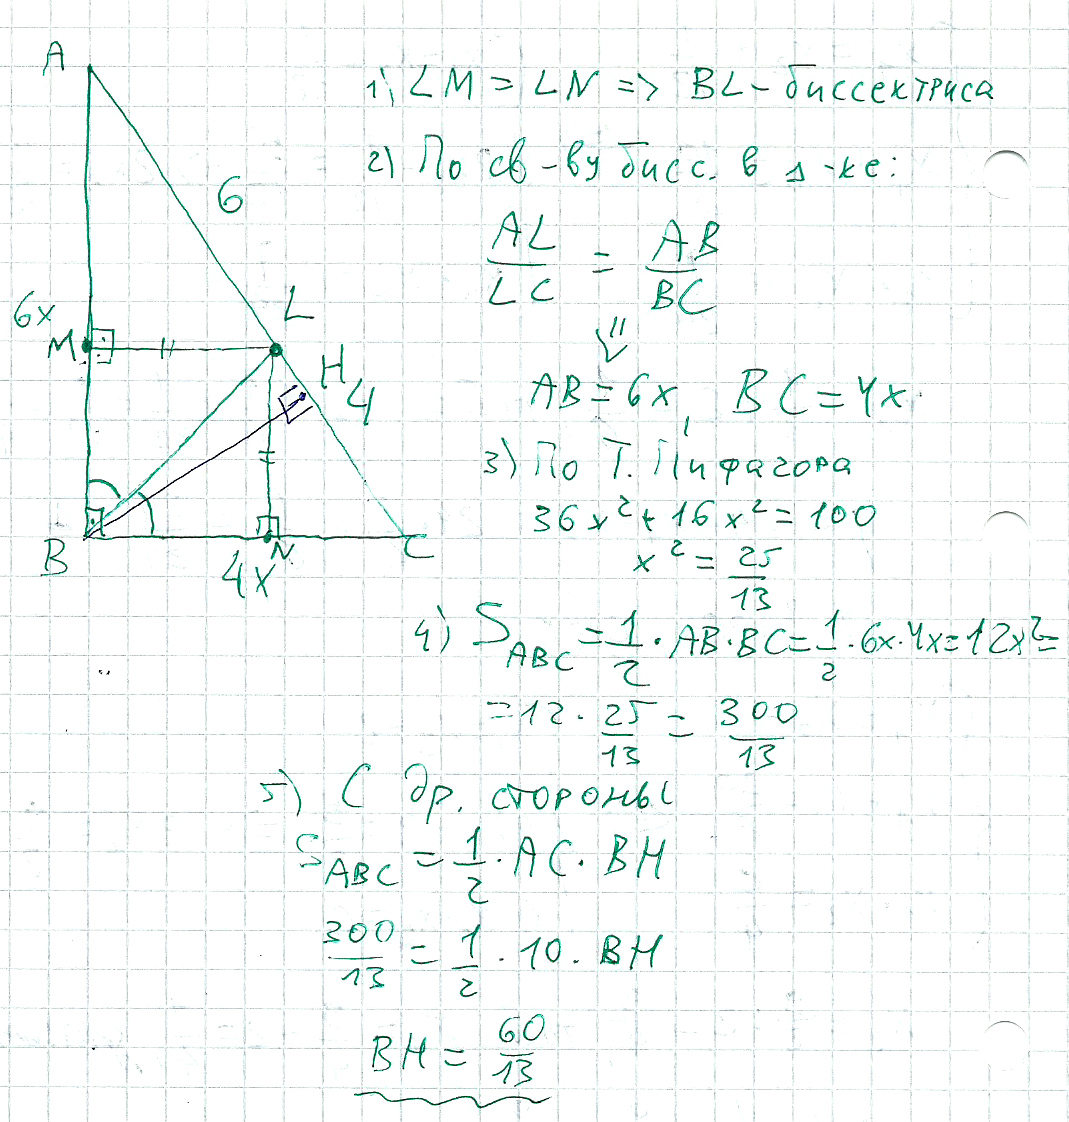 A
1) LM = LN => BL - биссектриса
2) По св-ву бисс. в Δ-ке:
6
AL/LC = AB/BC
6x
L
M
H
4
AB = 6x, BC = 4x
3) По Т. Пифагора
36x² + 16x² = 100
B
N
C
x² = 25/13
4x
4) S_ABC = 1/2 · AB · BC = 1/2 · 6x · 4x = 12x² =
= 12 · 25/13 = 300/13
5) С др. стороны
S_ABC = 1/2 · AC · BH
300/13 = 1/2 · 10 · BH
BH = 60/13